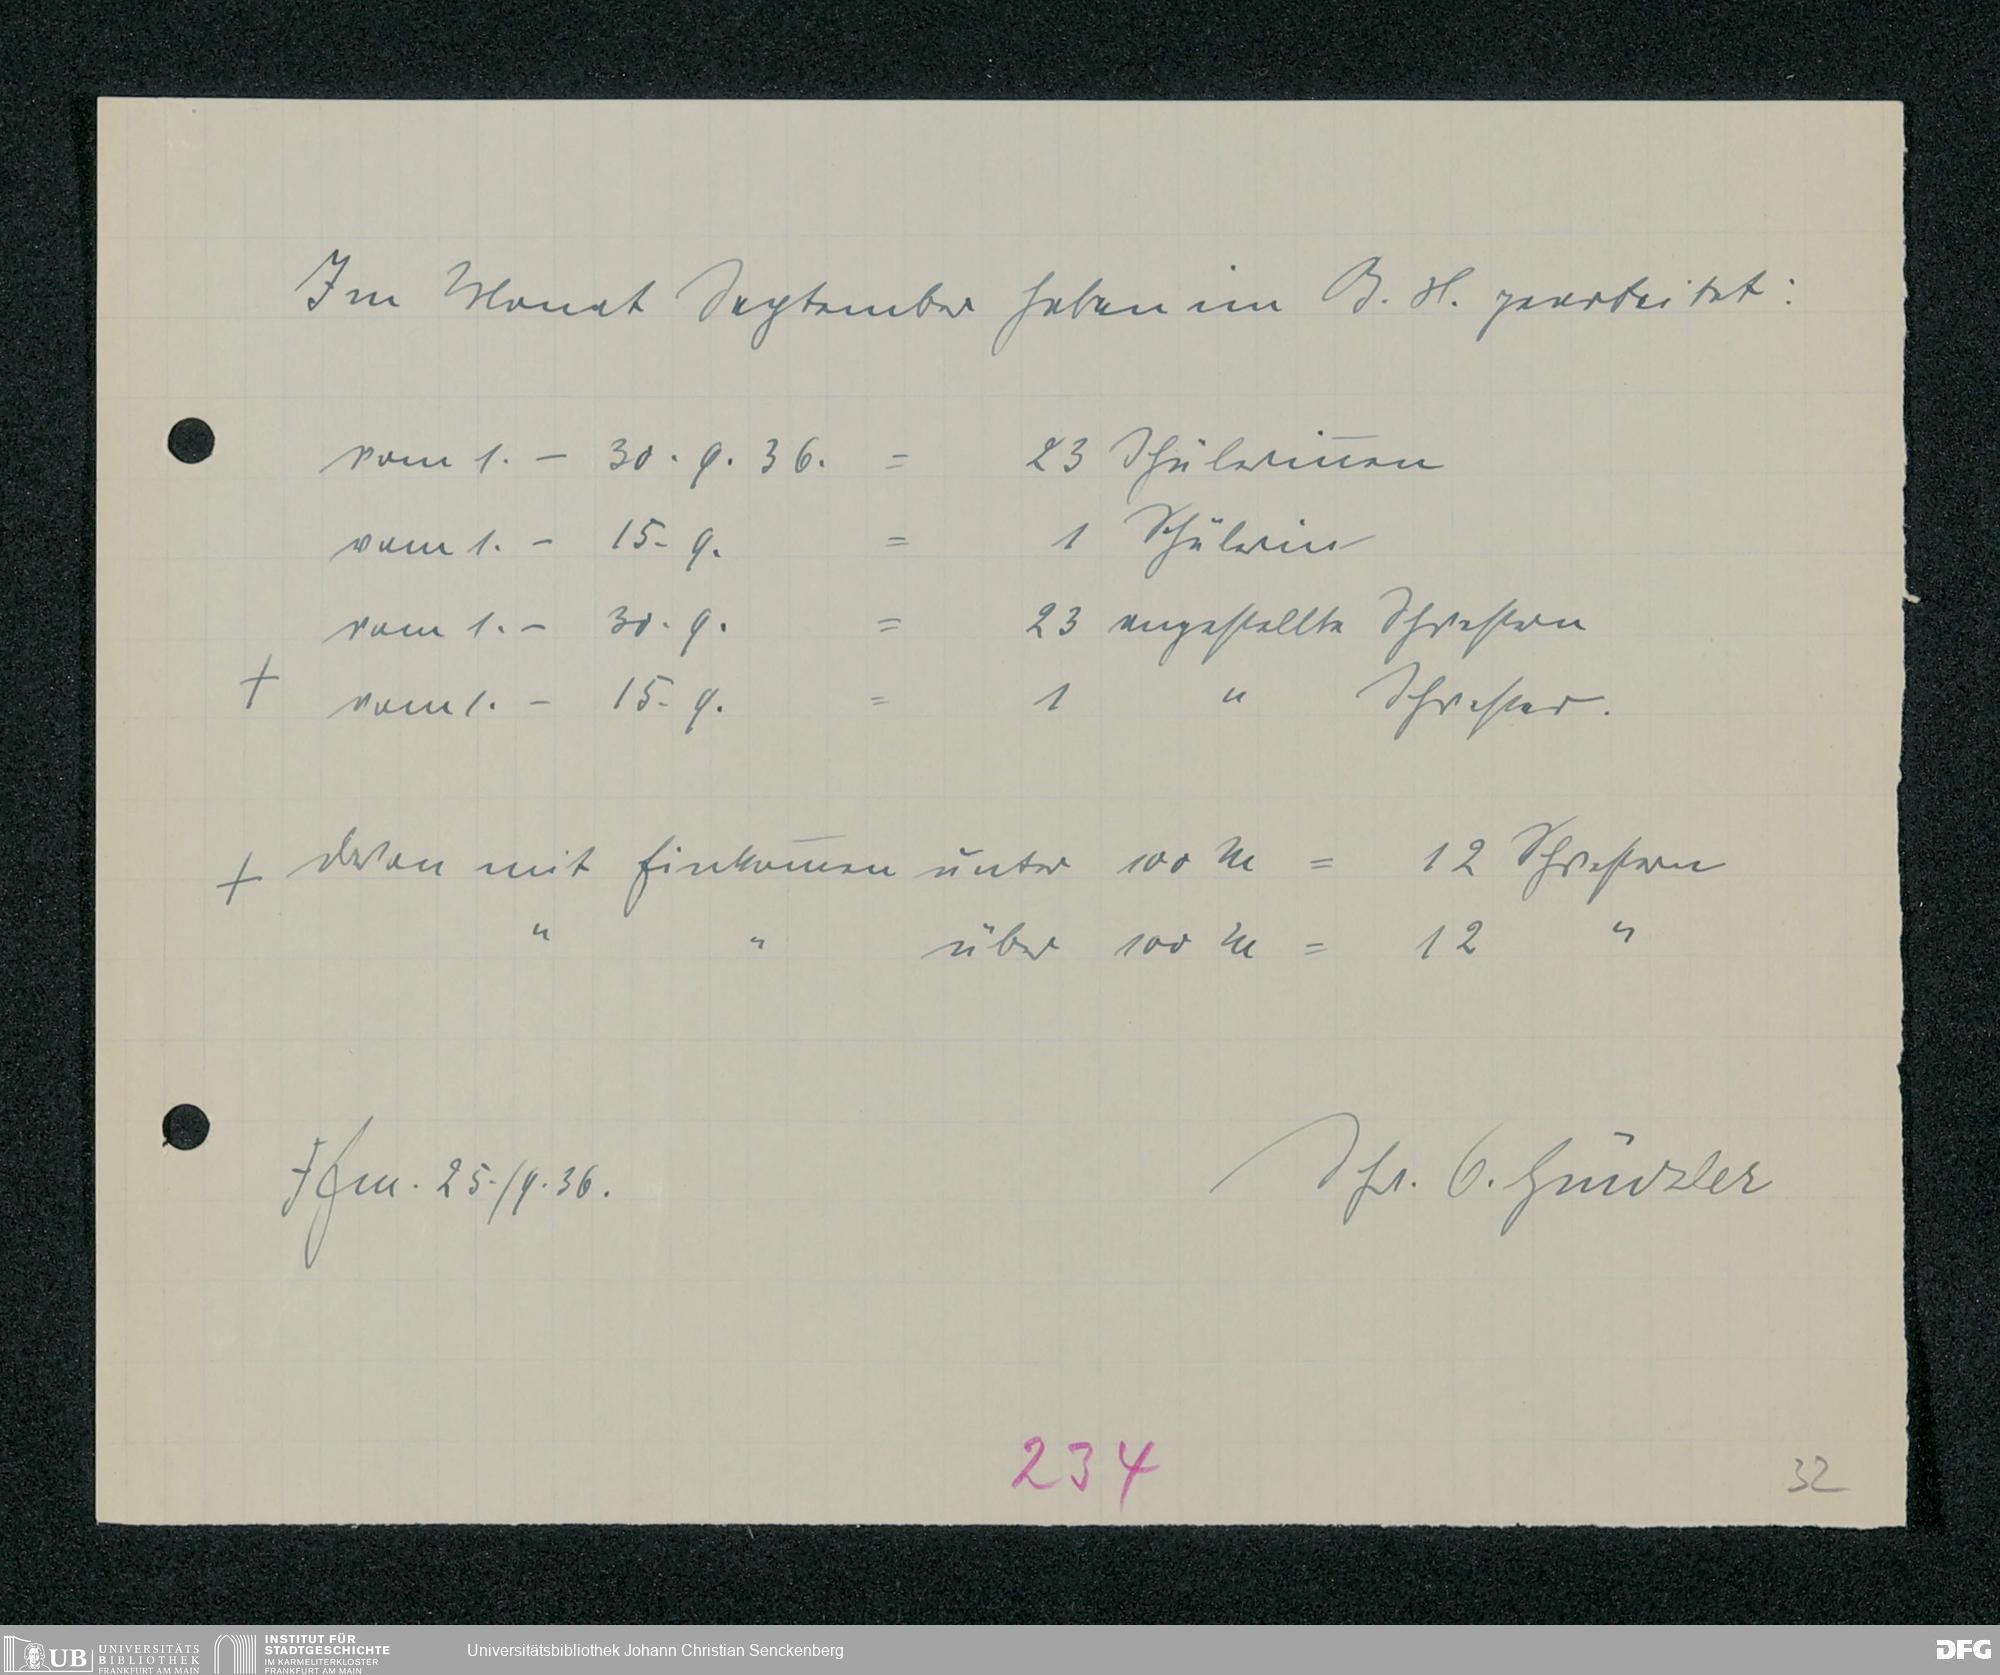 Im Monat September haben im B. H. gearbeitet:
vom 1. - 30. 9. 36. = 23 Schülerinnen
vom 1. - 15. 9. = 1 Schülerin
vom 1. - 30. 9. = 23 angestellte Schwestern
+ vom 1. - 15. 9. = 1 " Schwester.
+ davon mit Einkommen unter 100 M = 12 Schwestern
" " über 100 M = 12 "
Ffm. 25./9. 36.
Schw. O.
234
32
UB UNIVERSITÄTS
BIBLIOTHEK
FRANKFURT AM MAIN
INSTITUT FÜR
STADTGESCHICHTE
IM KARMELITERKLOSTER
FRANKFURT AM MAIN
Universitätsbibliothek Johann Christian Senckenberg
DFG